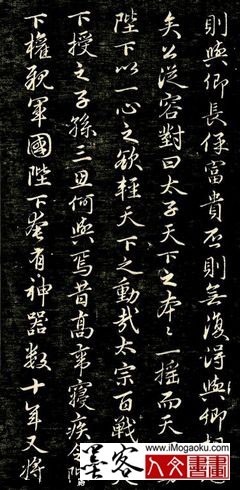 則與卿長保富貴否則無復得與卿相
矣公從容對曰太子天下之本〻一搖而天 動
陛下以一心之欲輕天下之動哉太宗百戰 天
下授之子孫三世何與焉昔高帝寢疾令
下權親軍國陛下奄有神器數十年又將
墨客
www.iMogaoku.com
人文